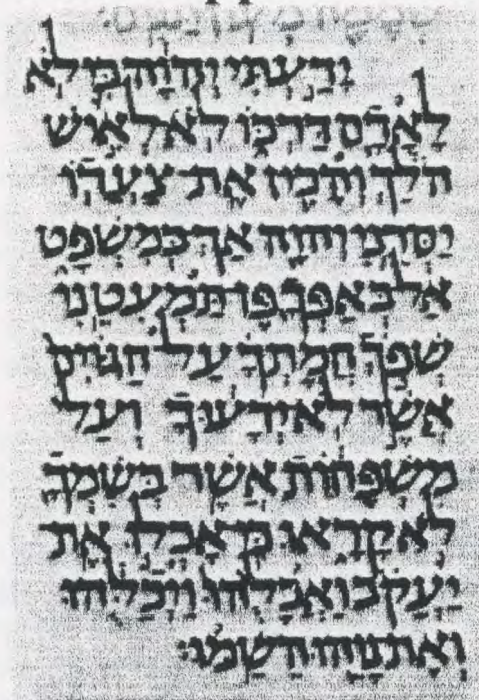 יָדַעְתִּי יְהוָה כִּי לֹא
לָאָדָם דַּרְכּוֹ לֹא לְאִישׁ
הֹלֵךְ וְהָכִין אֶת צַעֲדוֹ
יַסְּרֵנִי יְהוָה אַךְ בְּמִשְׁפָּט
אַל בְּאַפְּךָ פֶּן תַּמְעִטֵנִי
שְׁפֹךְ חֲמָתְךָ עַל הַגּוֹיִם
אֲשֶׁר לֹא יְדָעוּךָ וְעַל
מִשְׁפָּחוֹת אֲשֶׁר בְּשִׁמְךָ
לֹא קָרָאוּ כִּי אָכְלוּ אֶת
יַעֲקֹב וַאֲכָלֻהוּ וַיְכַלֻּהוּ
וְאֶת נָוֵהוּ הֵשַׁמּוּ׃